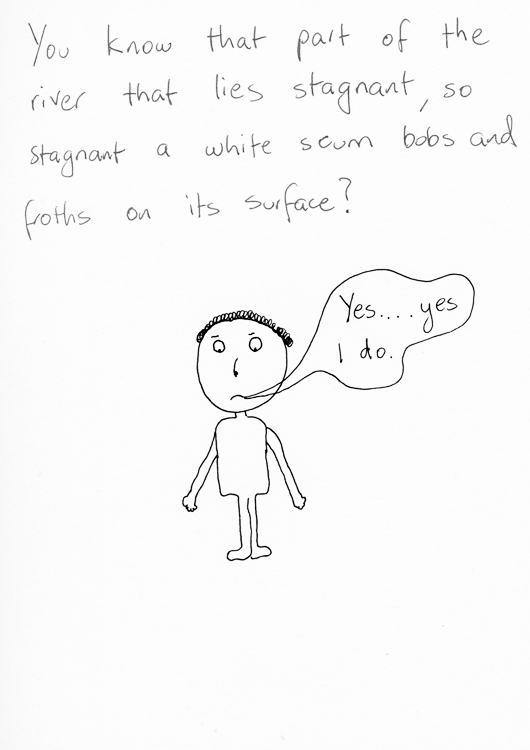 You know that part of the
river that lies stagnant, so
stagnant a white scum bobs and
froths on its surface?
Yes.... yes
I do.